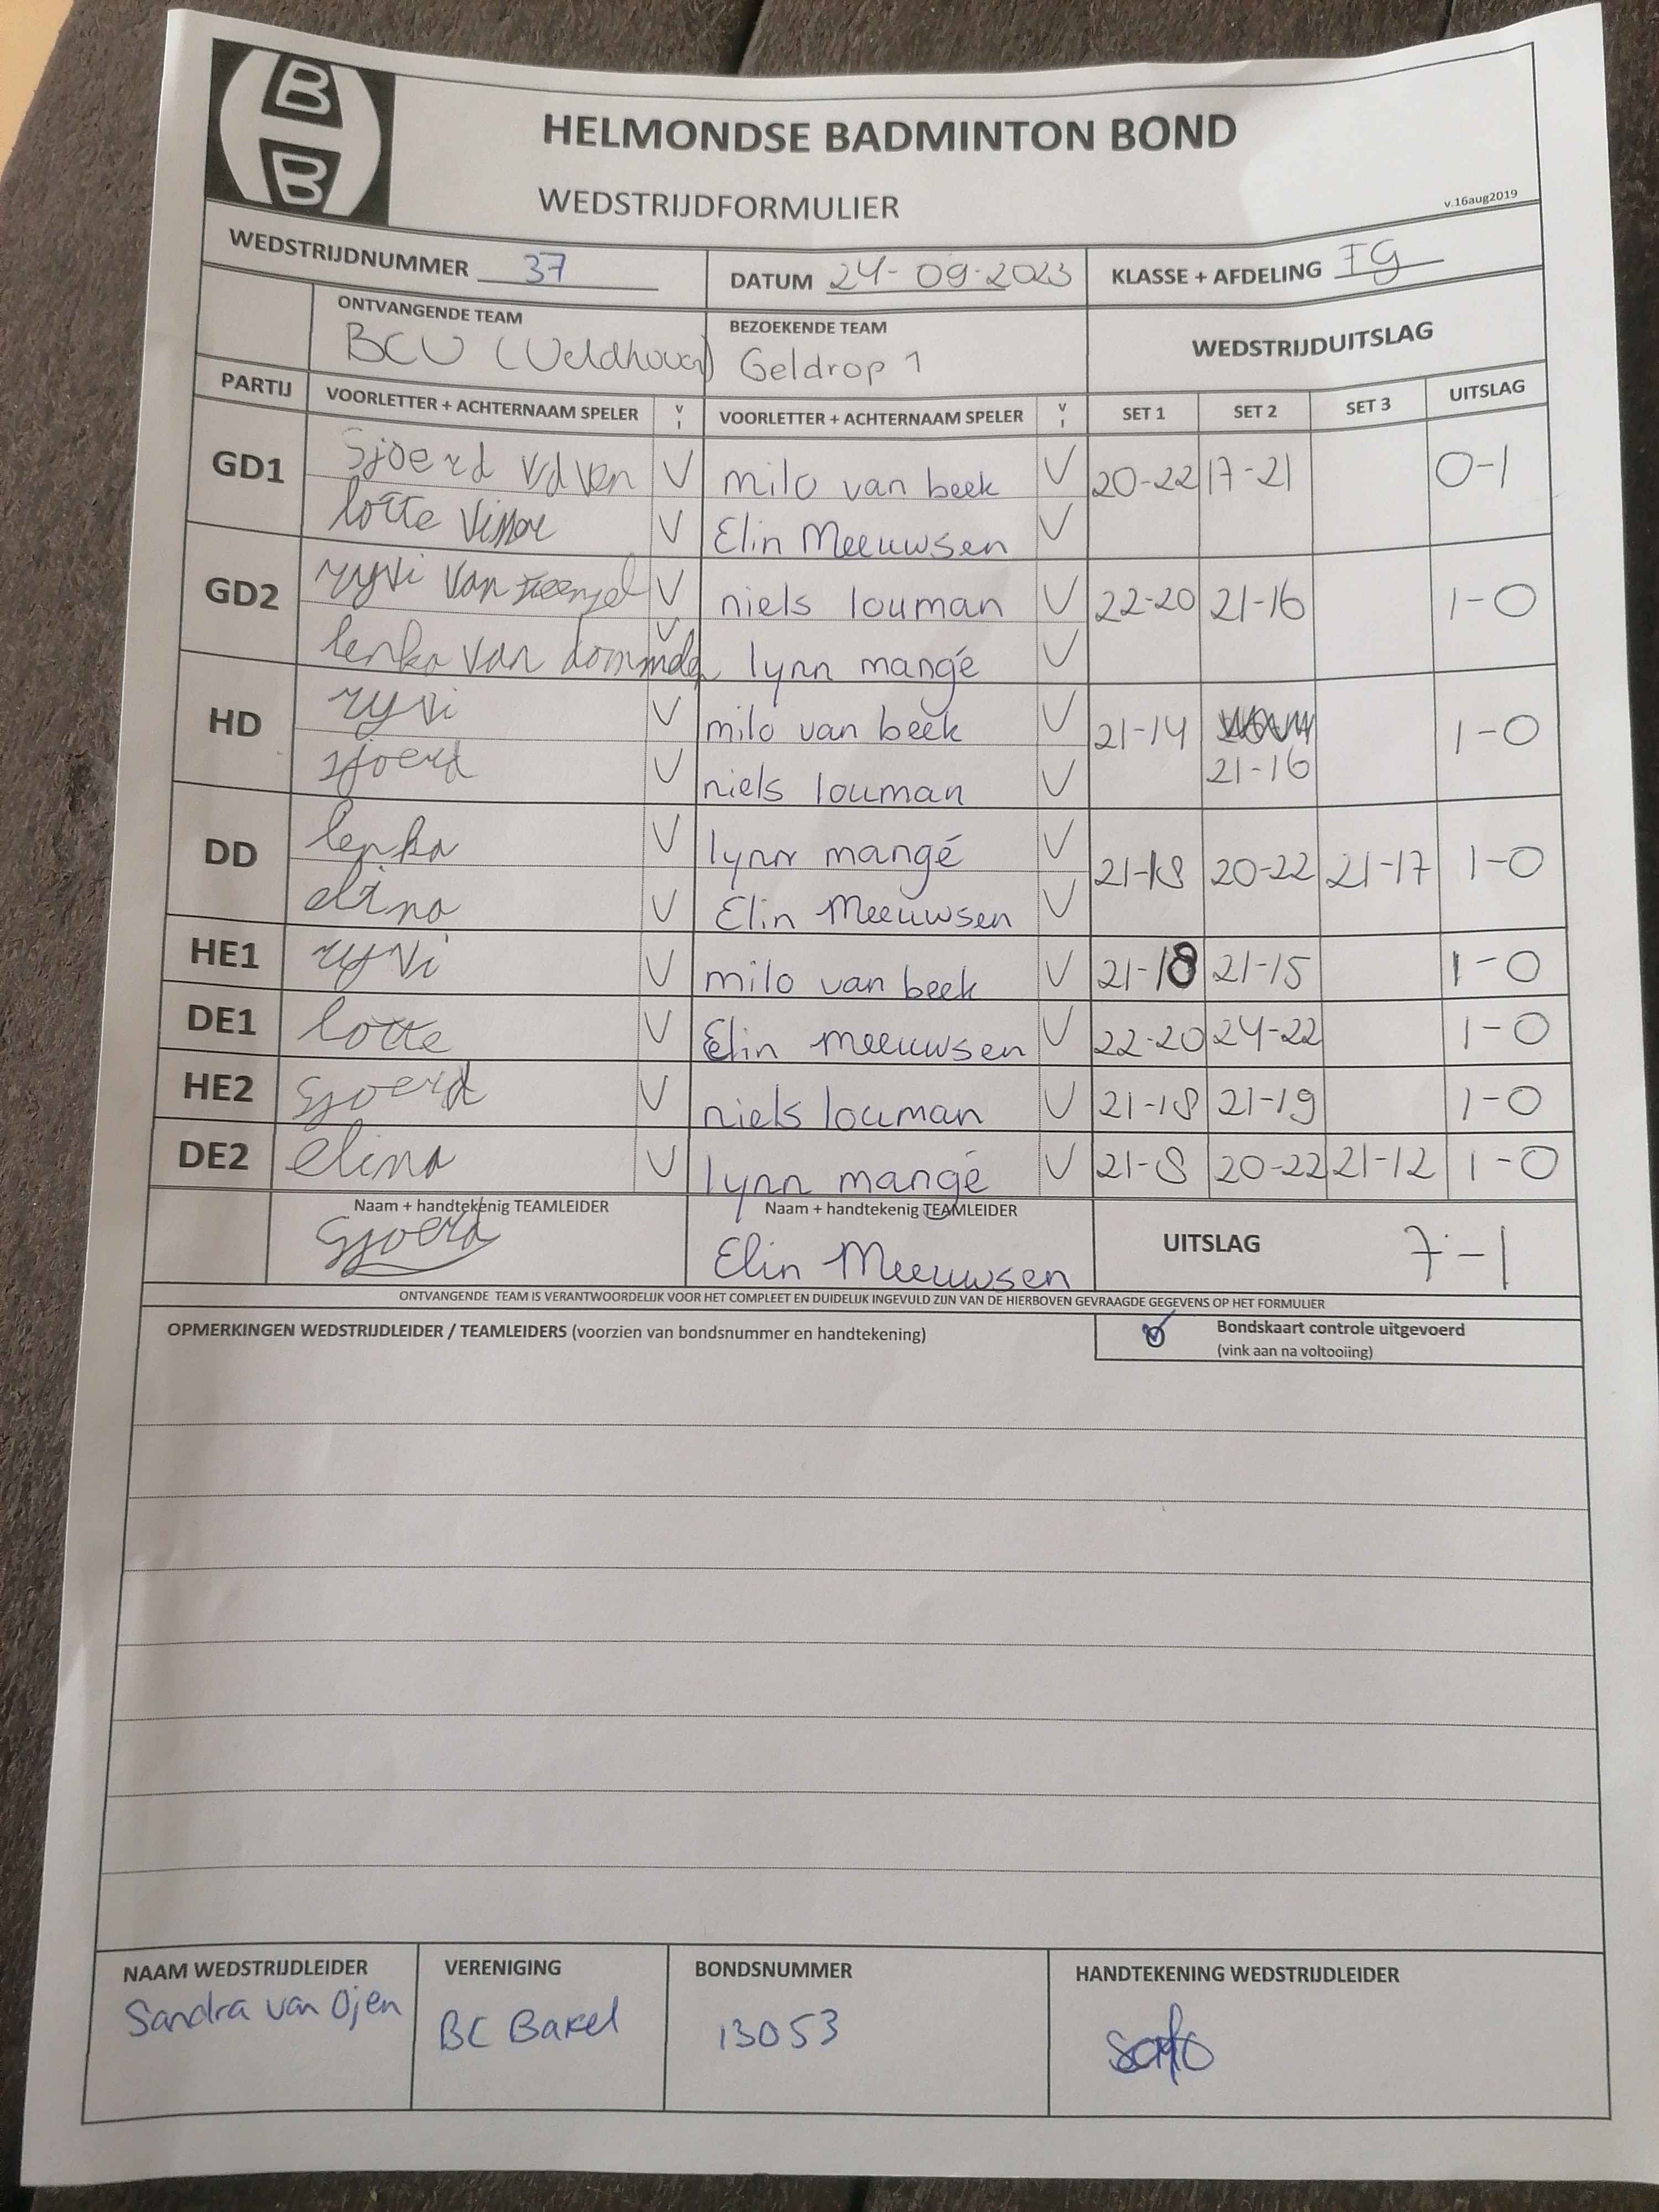 B
B
HELMONDSE BADMINTON BOND
WEDSTRIJDFORMULIER
v.16aug2019
WEDSTRIJDNUMMER 37 DATUM 24-09-2023 KLASSE + AFDELING IG
ONTVANGENDE TEAM BEZOEKENDE TEAM WEDSTRIJDUITSLAG
BCV (Veldhoven) Geldrop 1
PARTIJ VOORLETTER + ACHTERNAAM SPELER V I VOORLETTER + ACHTERNAAM SPELER V I SET 1 SET 2 SET 3 UITSLAG
GD1 Sjoerd vd ven V milo van beek V 20-22 17-21 0-1
lotte Visser V Elin Meeuwsen V
GD2 ryvi van V niels louman V 22-20 21-16 1-0
lenka van V lynn mangé V
HD ryvi V milo van beek V 21-14 21-16 1-0
sjoerd V niels louman V
DD lenka V lynn mangé V 21-18 20-22 21-17 1-0
elina V Elin Meeuwsen V
HE1 ryvi V milo van beek V 21-18 21-15 1-0
DE1 lotte V Elin meeuwsen V 22-20 24-22 1-0
HE2 Sjoerd V niels louman V 21-18 21-19 1-0
DE2 elina V lynn mangé V 21-8 20-22 21-12 1-0
Naam + handtekenig TEAMLEIDER Naam + handtekenig TEAMLEIDER
Sjoerd Elin Meeuwsen UITSLAG 7-1
ONTVANGENDE TEAM IS VERANTWOORDELIJK VOOR HET COMPLEET EN DUIDELIJK INGEVULD ZIJN VAN DE HIERBOVEN GEVRAAGDE GEGEVENS OP HET FORMULIER
OPMERKINGEN WEDSTRIJDLEIDER / TEAMLEIDERS (voorzien van bondsnummer en handtekening) Bondskaart controle uitgevoerd
(vink aan na voltooiing)
NAAM WEDSTRIJDLEIDER VERENIGING BONDSNUMMER HANDTEKENING WEDSTRIJDLEIDER
Sandra van Ojen BC Bakel 13053